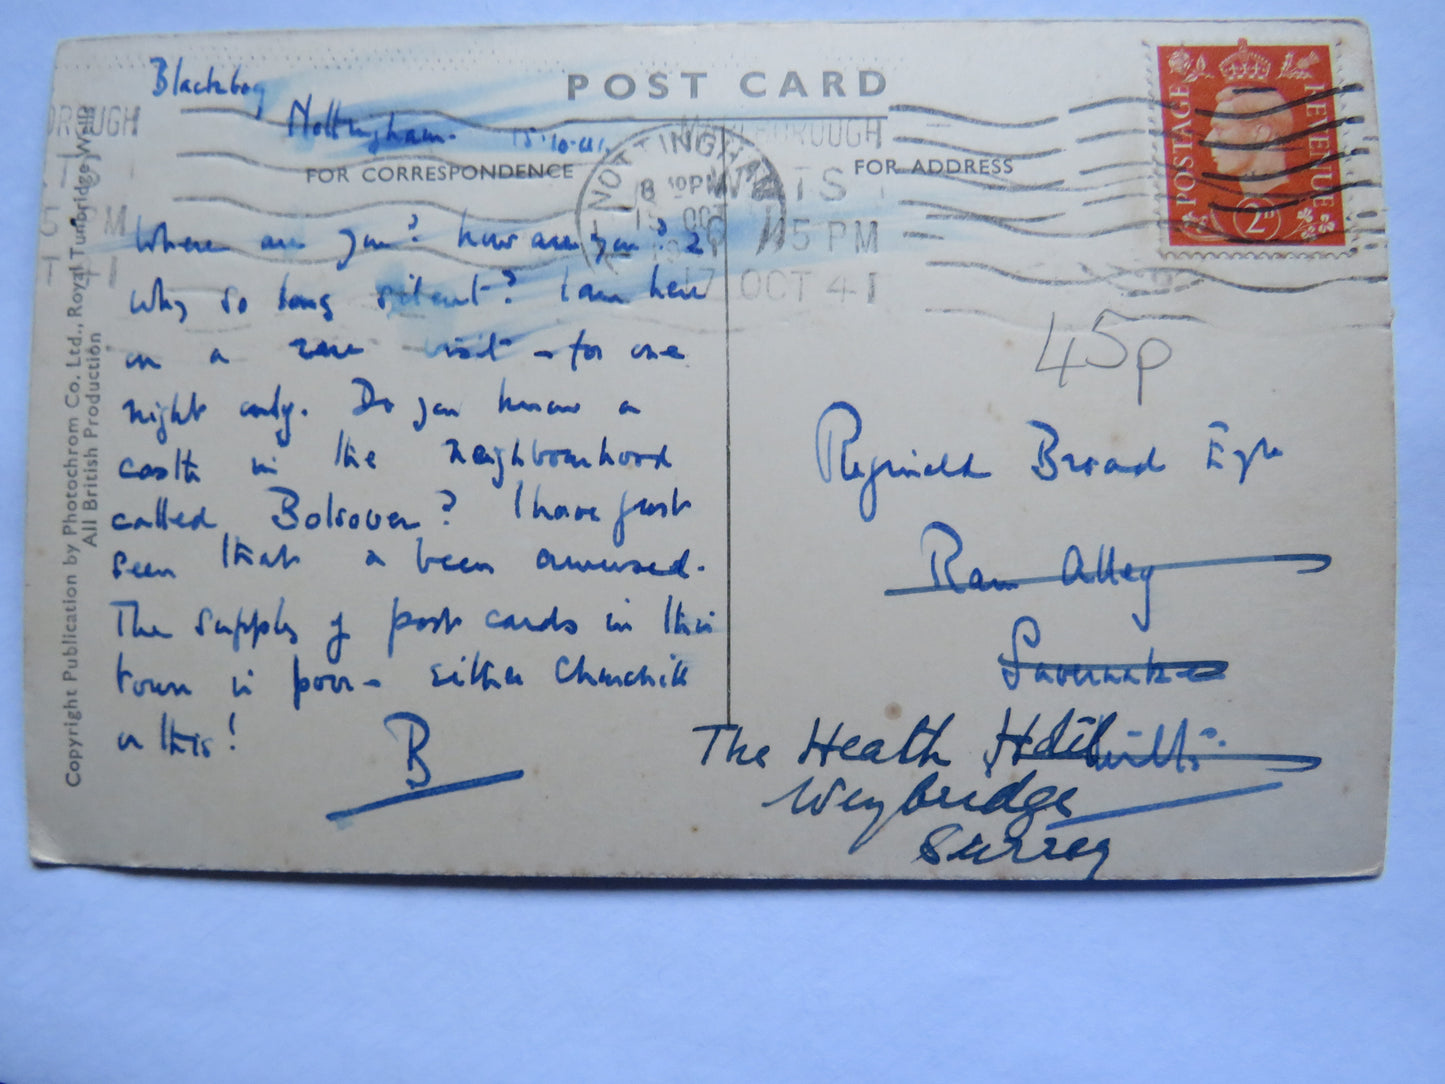 POST CARD
Blackboy
Nottingham. 15.10.41.
FOR CORRESPONDENCE
FOR ADDRESS
NOTTINGHAM
8 30 PM
15 OCT
MARLBOROUGH
WILTS
5 PM
17 OCT 41
POSTAGE
REVENUE
2D
45p
Where are you? how are you?
Why so long silent? I am here
on a rare visit – for one
night only. Do you know a
castle in the neighbourhood
called Bolsover? I have just
seen that & been amused.
The supply of post cards in this
town is poor – either Churchill
or this!
B
Reginald Broad Esqre
Ram Alley
Savernake
Wilts.
The Heath Hotel
Weybridge
Surrey
Copyright Publication by Photochrom Co. Ltd., Royal Tunbridge Wells
All British Production